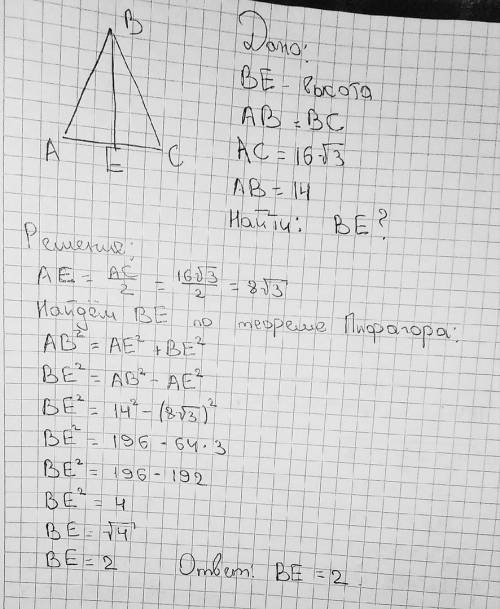 B
A
E
C
Дано:
BE - высота
AB = BC
AC = 16√3
AB = 14
Найти: BE?
Решение:
AE = AC/2 = 16√3/2 = 8√3
Найдём BE по теореме Пифагора:
AB² = AE² + BE²
BE² = AB² - AE²
BE² = 14² - (8√3)²
BE² = 196 - 64·3
BE² = 196 - 192
BE² = 4
BE = √4
BE = 2 Ответ: BE = 2.